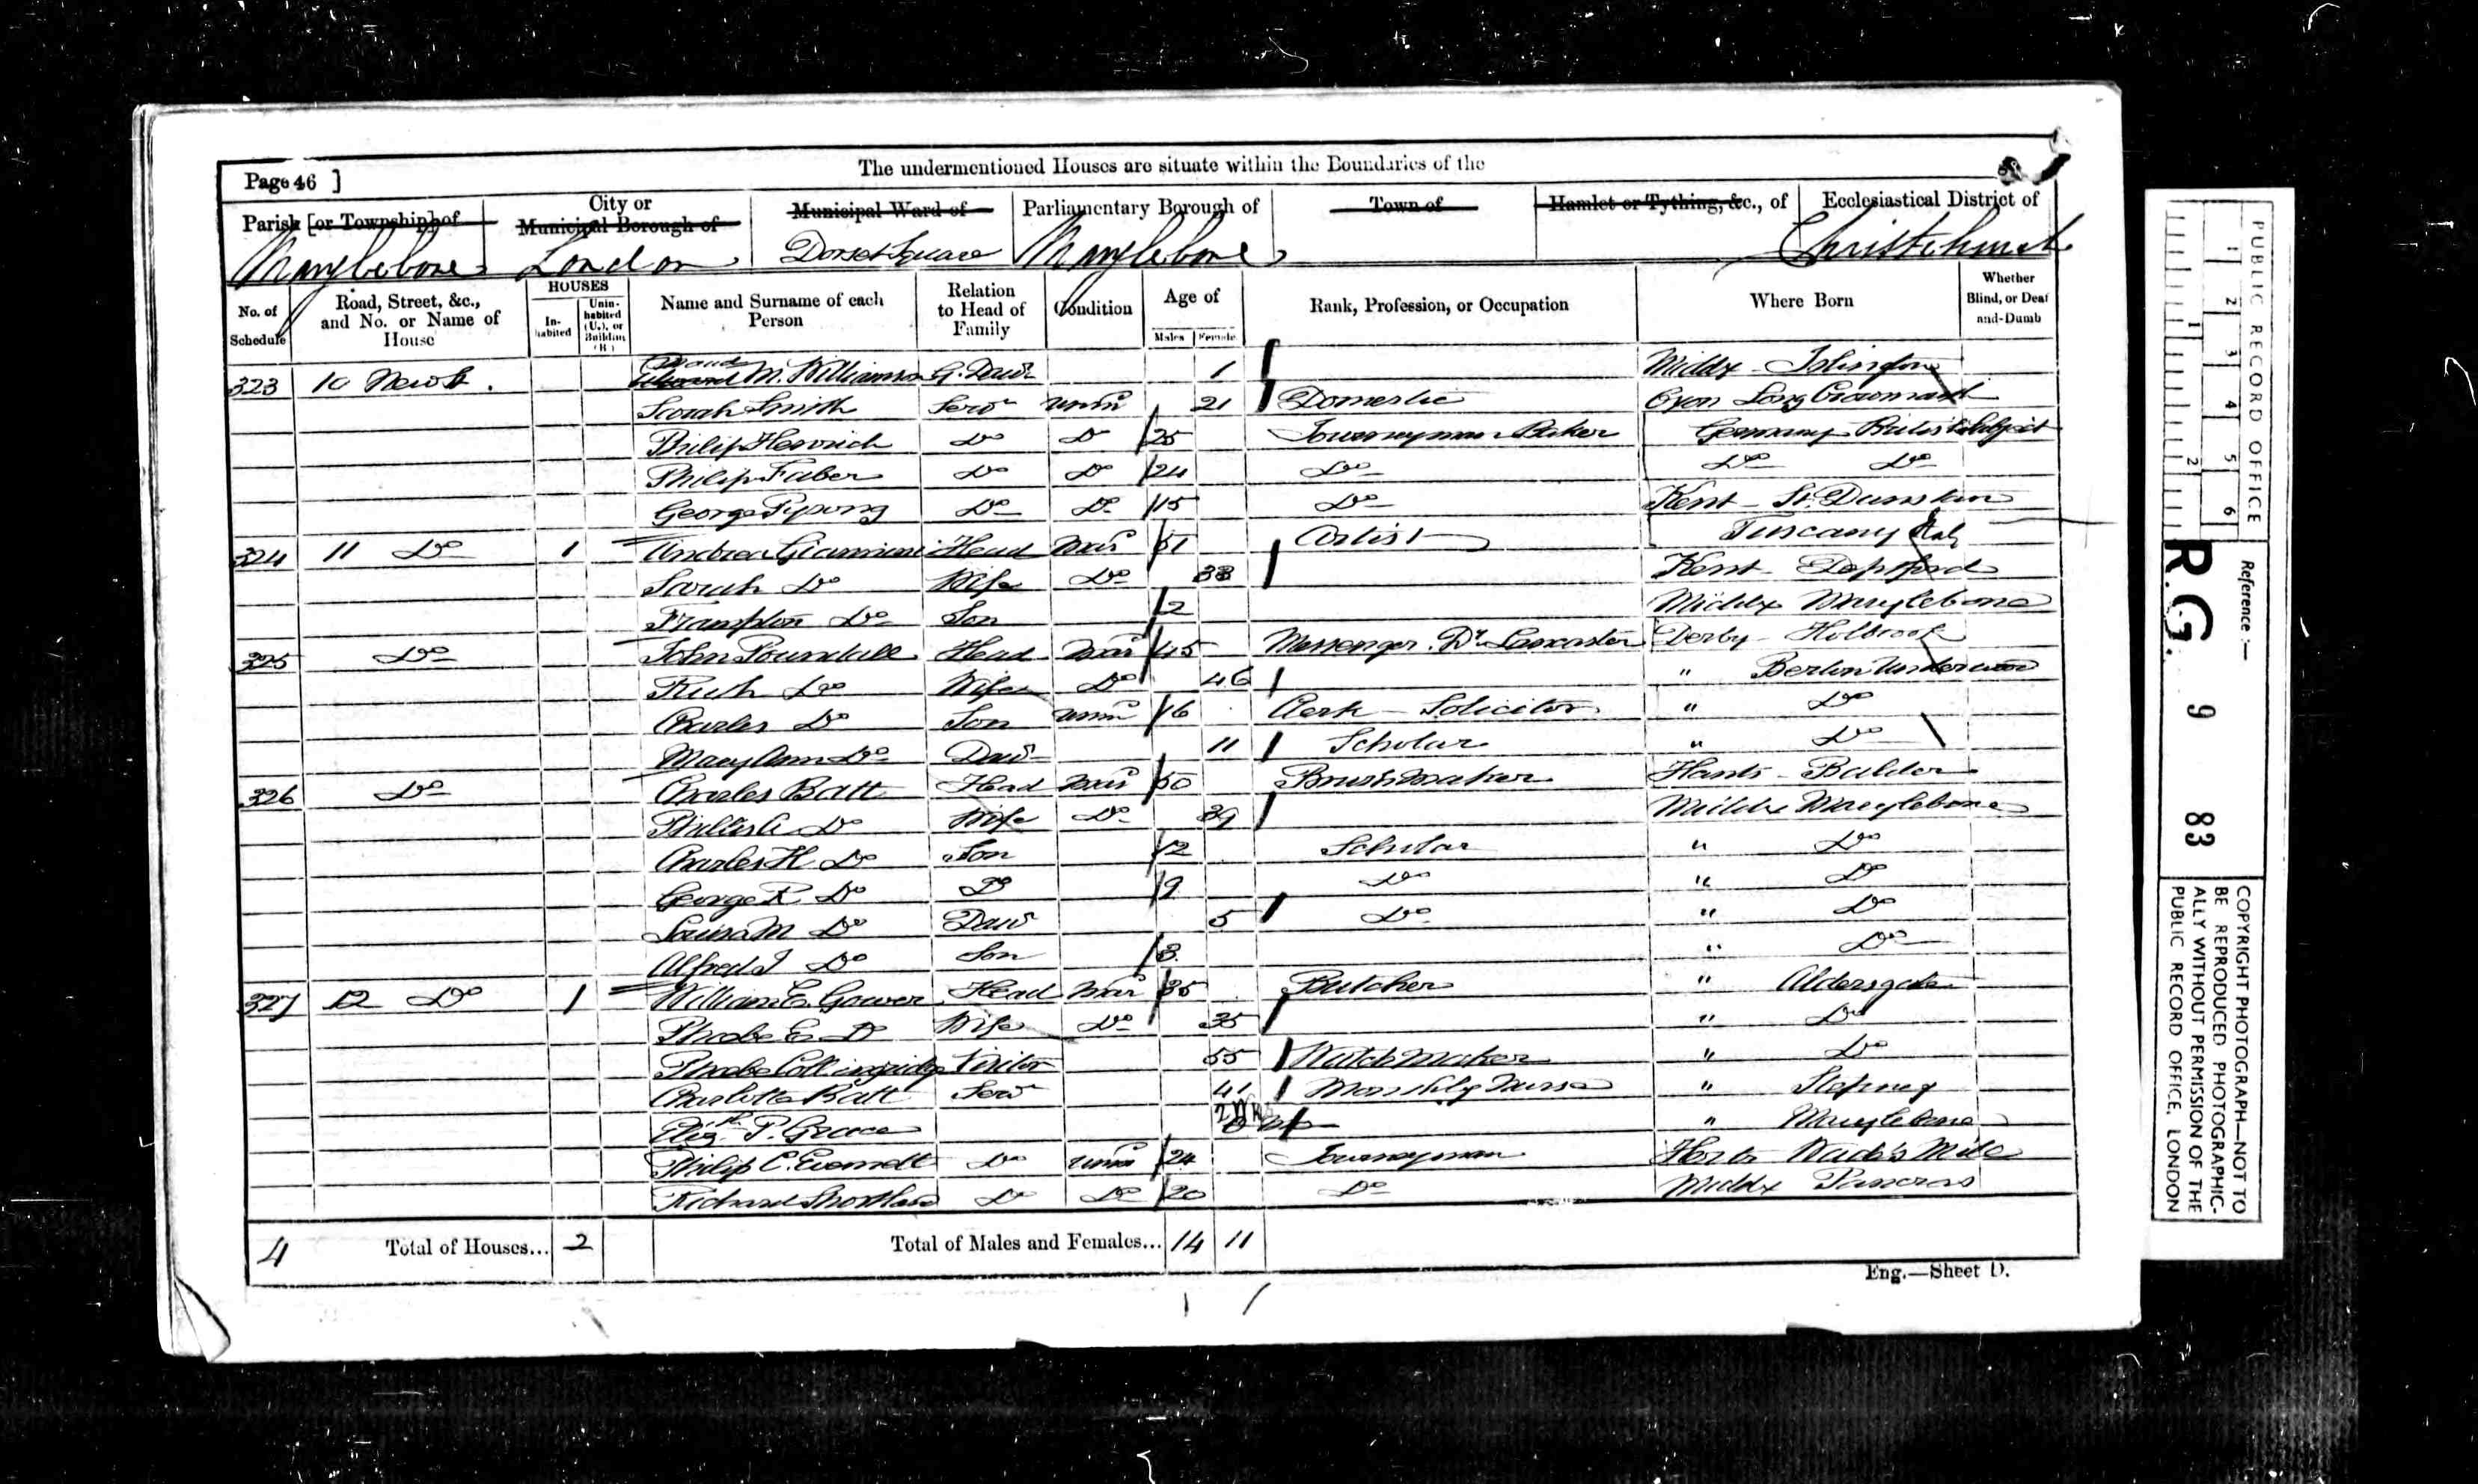 The undermentioned Houses are situate within the Boundaries of the
Page 46 ]
Parish [or Township] of
City or Municipal Borough of
Municipal Ward of
Parliamentary Borough of
Town of
Hamlet or Tything, &c., of
Ecclesiastical District of
Marylebone London Dorset Square Marylebone Christchurch
No. of Schedule
Road, Street, &c., and No. or Name of House
HOUSES
In-habited
Unin-habited (U.), or Building (B.)
Name and Surname of each Person
Relation to Head of Family
Condition
Age of
Males Females
Rank, Profession, or Occupation
Where Born
Whether Blind, or Deaf and-Dumb
323 10 New St. M. Williamson G. Daur 1 Middx - Islington
Sarah Smith Serv Unm 21 Domestic Oxon Long Crowmarsh
Philip Henrich Do Do 25 Journeyman Baker Germany British Subject
Philip Faber Do Do 24 Do Do Do
George Do Do 15 Do Kent - St. Dunstan
324 11 Do 1 Andrea Giannini Head Mar 51 Artist Tuscany Italy
Sarah Do Wife Do 33 Kent Deptford
Frampton Do Son 2 Middx Marylebone
325 Do John Poundall Head Mar 45 Messenger. Dr Lancaster Derby - Holbrook
Ruth Do Wife Do 46 "
Charles Do Son Unm 16 Clerk - Solicitor " Do
Mary Ann Do Daur 11 Scholar " Do
326 Do Charles Batt Head Mar 50 Brushmaker Hants -
Do Wife Do 39 Middx Marylebone
Charles H. Do Son 12 Scholar " Do
George R. Do Do 9 Do " Do
Louisa M Do Daur 5 Do " Do
Alfred J Do Son 3 " Do
327 12 Do 1 William E. Gower Head Mar 35 Butcher " Aldersgate
Phoebe E. Do Wife Do 35 " Do
Phoebe Collingridge Visitor 55 Watch Maker " Do
Charlotte Batt Serv 41 Monthly Nurse " Stepney
Elizth P. " Marylebone
Philip C. Do Unm 24 Journeyman Herts Wade's Mill
Richard Do Do 20 Do Middx Pancras
4 Total of Houses... 2 Total of Males and Females... 14 11
Eng.—Sheet D.
PUBLIC RECORD OFFICE
1 2 3 4 5 6
1 2
Reference :—
R.G. 9 83
COPYRIGHT PHOTOGRAPH—NOT TO
BE REPRODUCED PHOTOGRAPHIC-
ALLY WITHOUT PERMISSION OF THE
PUBLIC RECORD OFFICE, LONDON